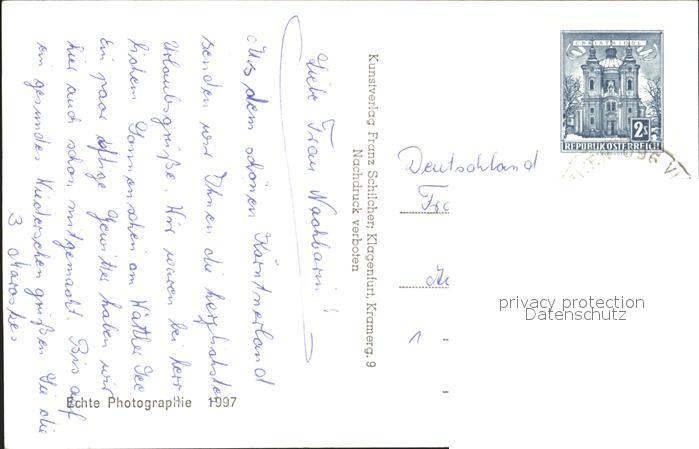 Liebe Frau Nachbarin!
Aus dem schönen Kärntnerland
senden wir Ihnen die herzlichsten
Urlaubsgrüße. Wir waren bei herr-
lichem Sonnenschein am
Ein paar heftige Gewitter haben wir
hier auch schon mitgemacht. Bis auf
ein gesundes Wiedersehen grüßen Sie die
3
Echte Photographie 1997
Kunstverlag Franz Schilcher; Klagenfurt, Kramerg. 9
Nachdruck verboten
CHRISTKINDL
2S
REPUBLIK ÖSTERREICH
Deutschland
1
privacy protection
Datenschutz